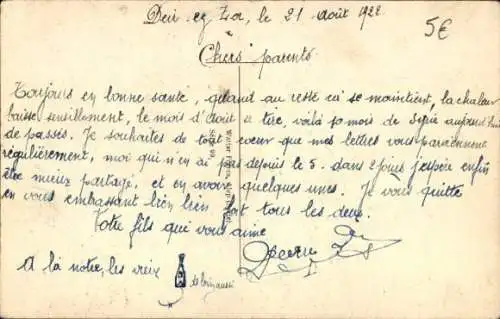 Deir ez Zor, le 21 Août 1922
5€
Chers parents
Toujours en bonne santé, quand au reste ça se maintient, la chaleur
baisse sensiblement, le mois d'Août a tire, voilà 10 mois de Syrie aujourd'hui
de passés. Je souhaites de tout cœur que mes lettres vous parviennent
régulièrement, moi qui n'en ai pas depuis le 5. dans 2 jours j'espère enfin
être mieux partagé, et en avoir quelques unes. Je vous quitte
en vous embrassant bien bien fort tous les deux.
Votre fils qui vous aime
A la notre, les vieux